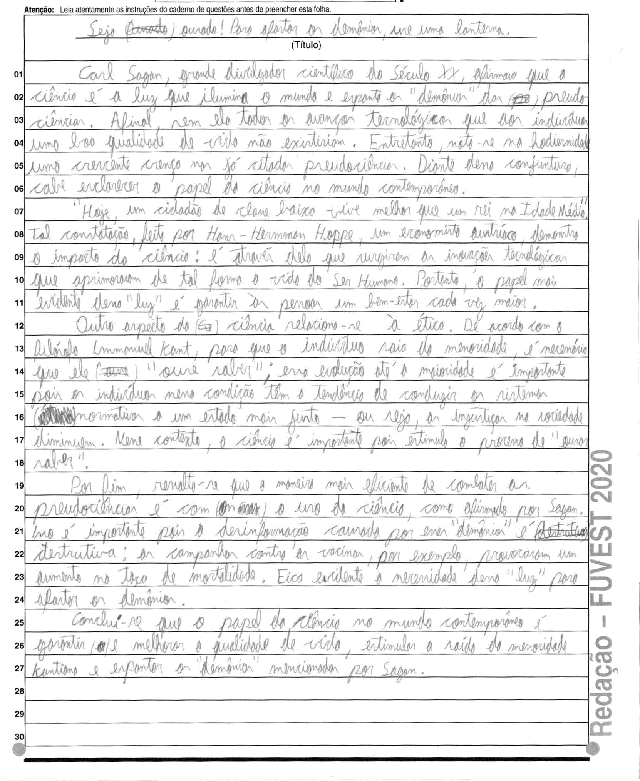 Atenção: Leia atentamente as instruções do caderno de questões antes de preencher esta folha.
Seja (ousado) ousado! Para afastar os demônios, use uma lanterna.
(Título)
01 Carl Sagan, grande divulgador científico do Século XX, afirmava que a
02 ciência é a luz que ilumina o mundo e espanta os "demônios" das pseudo
03 ciências. Afinal, sem ela todos os avanços tecnológicos que aos indivíduos
04 uma boa qualidade de vida não existiriam. Entretanto, nota-se na hodiernidade
05 uma crescente crença nas já citadas pseudociências. Diante dessa conjuntura,
06 cabe esclarecer o papel da ciência no mundo contemporâneo.
07 "Hoje, um cidadão de classe baixa vive melhor que um rei na Idade Média",
08 tal constatação, feita por Hans-Hermman Hoppe, um economista austríaco, demonstra
09 o impacto da ciência: é através dela que surgiram as inovações tecnológicas
10 que aprimoraram de tal forma a vida do Ser Humano. Portanto, o papel mais
11 evidente dessa "luz" é garantir às pessoas um bem-estar cada vez maior.
12 Outro aspecto da ciência relaciona-se à ética. De acordo com o
13 filósofo Immanuel Kant, para que o indivíduo saia da menoridade, é necessário
14 que ele (ouse) "ouse saber"; essa evolução até a maioridade é importante
15 pois os indivíduos nessa condição têm a tendência de conduzir os sistemas
16 normativos a um estado mais justo — ou seja, as injustiças na sociedade
17 diminuem. Nesse contexto, a ciência é importante pois estimula o processo de "ousar
18 saber".
19 Por fim, ressalta-se que a maneira mais eficiente de combater as
20 pseudociências é com o uso da ciência, como afirmado por Sagan.
21 Isso é importante pois a desinformação causada por esses "demônios" é
22 destrutiva: as campanhas contra as vacinas, por exemplo, provocaram um
23 aumento na taxa de mortalidade. Fica evidente a necessidade dessa "luz" para
24 afastar os demônios.
25 Conclui-se que o papel da ciência no mundo contemporâneo é
26 garantir e melhorar a qualidade de vida, estimular a saída da menoridade
27 kantiana e espantar os "demônios" mencionados por Sagan.
28
29
30
Redação – FUVEST 2020